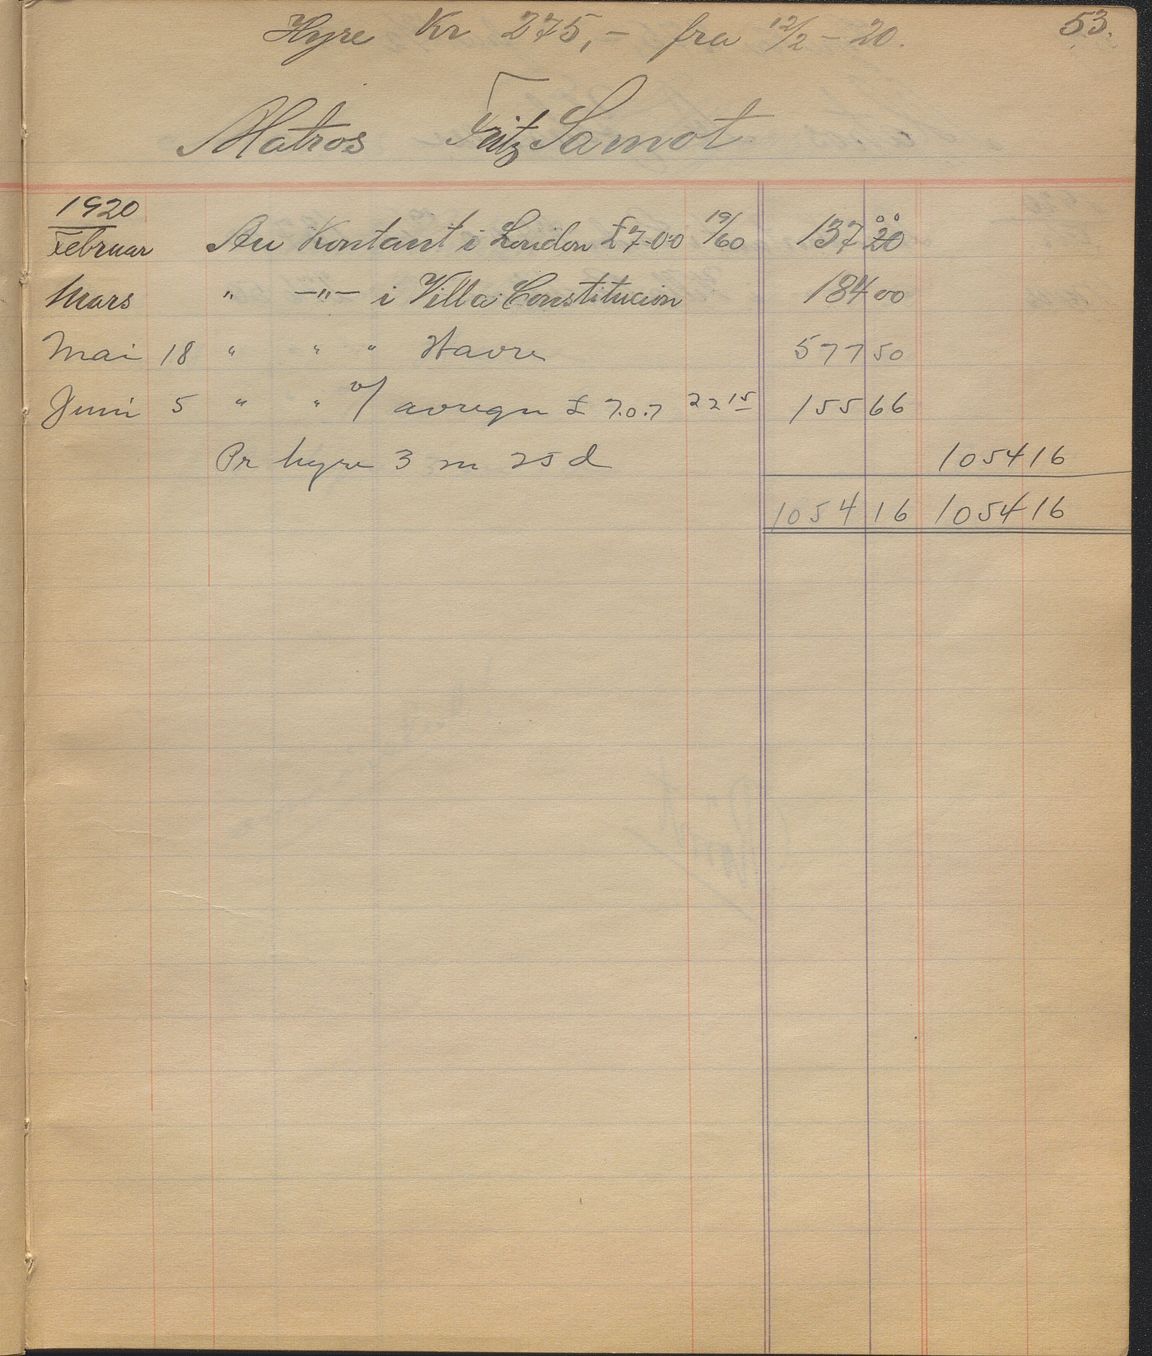 53.
Hyre Kr 275,- fra 12/2 - 20.
Matros Fritz Samot
1920
Februar An Kontant i London £ 7-0-0 19/60 137 20
Mars " —"— i Villa Constitucion 184 00
Mai 18 " " " Havre 577 50
Juni 5 " " v/ avregn £ 7.0.7 22 15 155 66
Pr hyre 3 m 25 d 1054 16
1054 16 1054 16